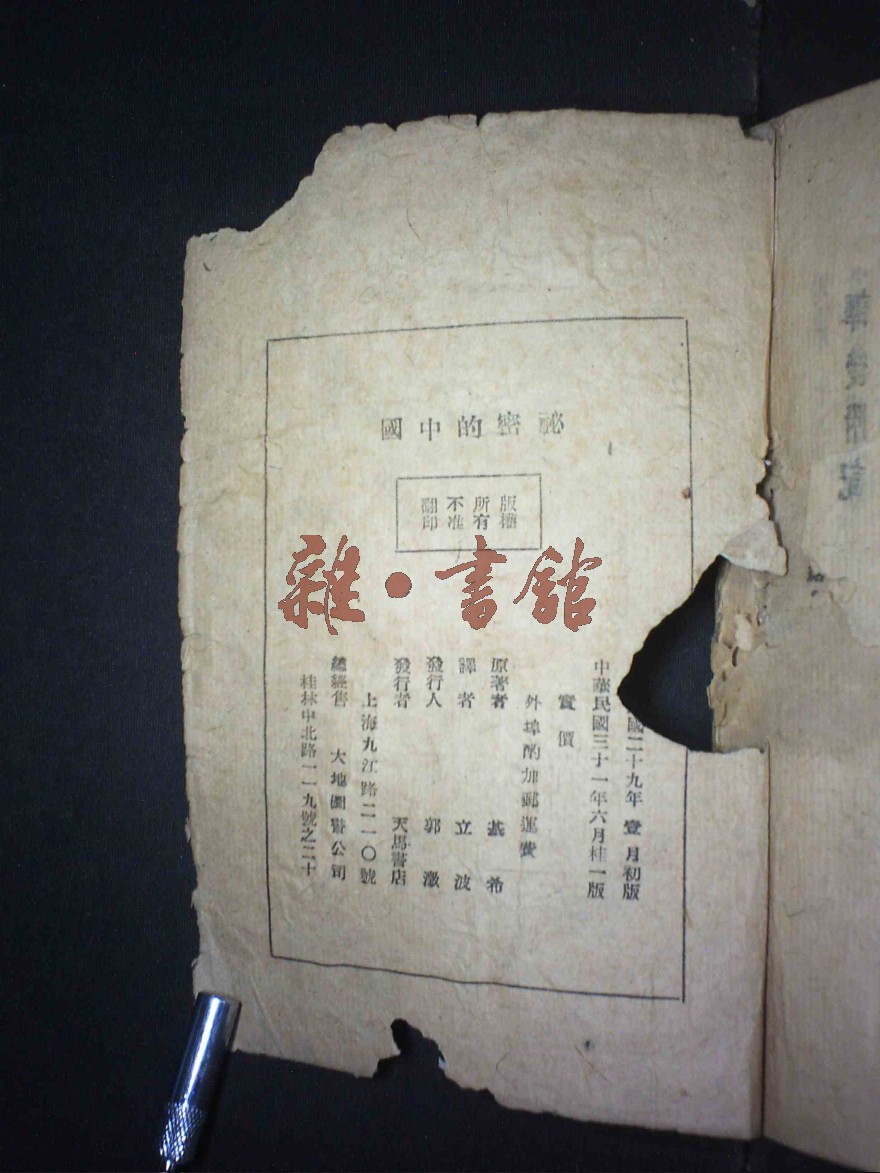 祕密的中國
版權
所有
不准
翻印
雜·書館
國二十九年壹月初版
中華民國三十一年六月桂一版
實價
外埠酌加郵運費
原著者 基希
譯者 立波
發行人 郭澂
發行者 天馬書店
上海九江路二一〇號
總經售 大地圖書公司
桂林中北路一一九號之二十
譯後附記